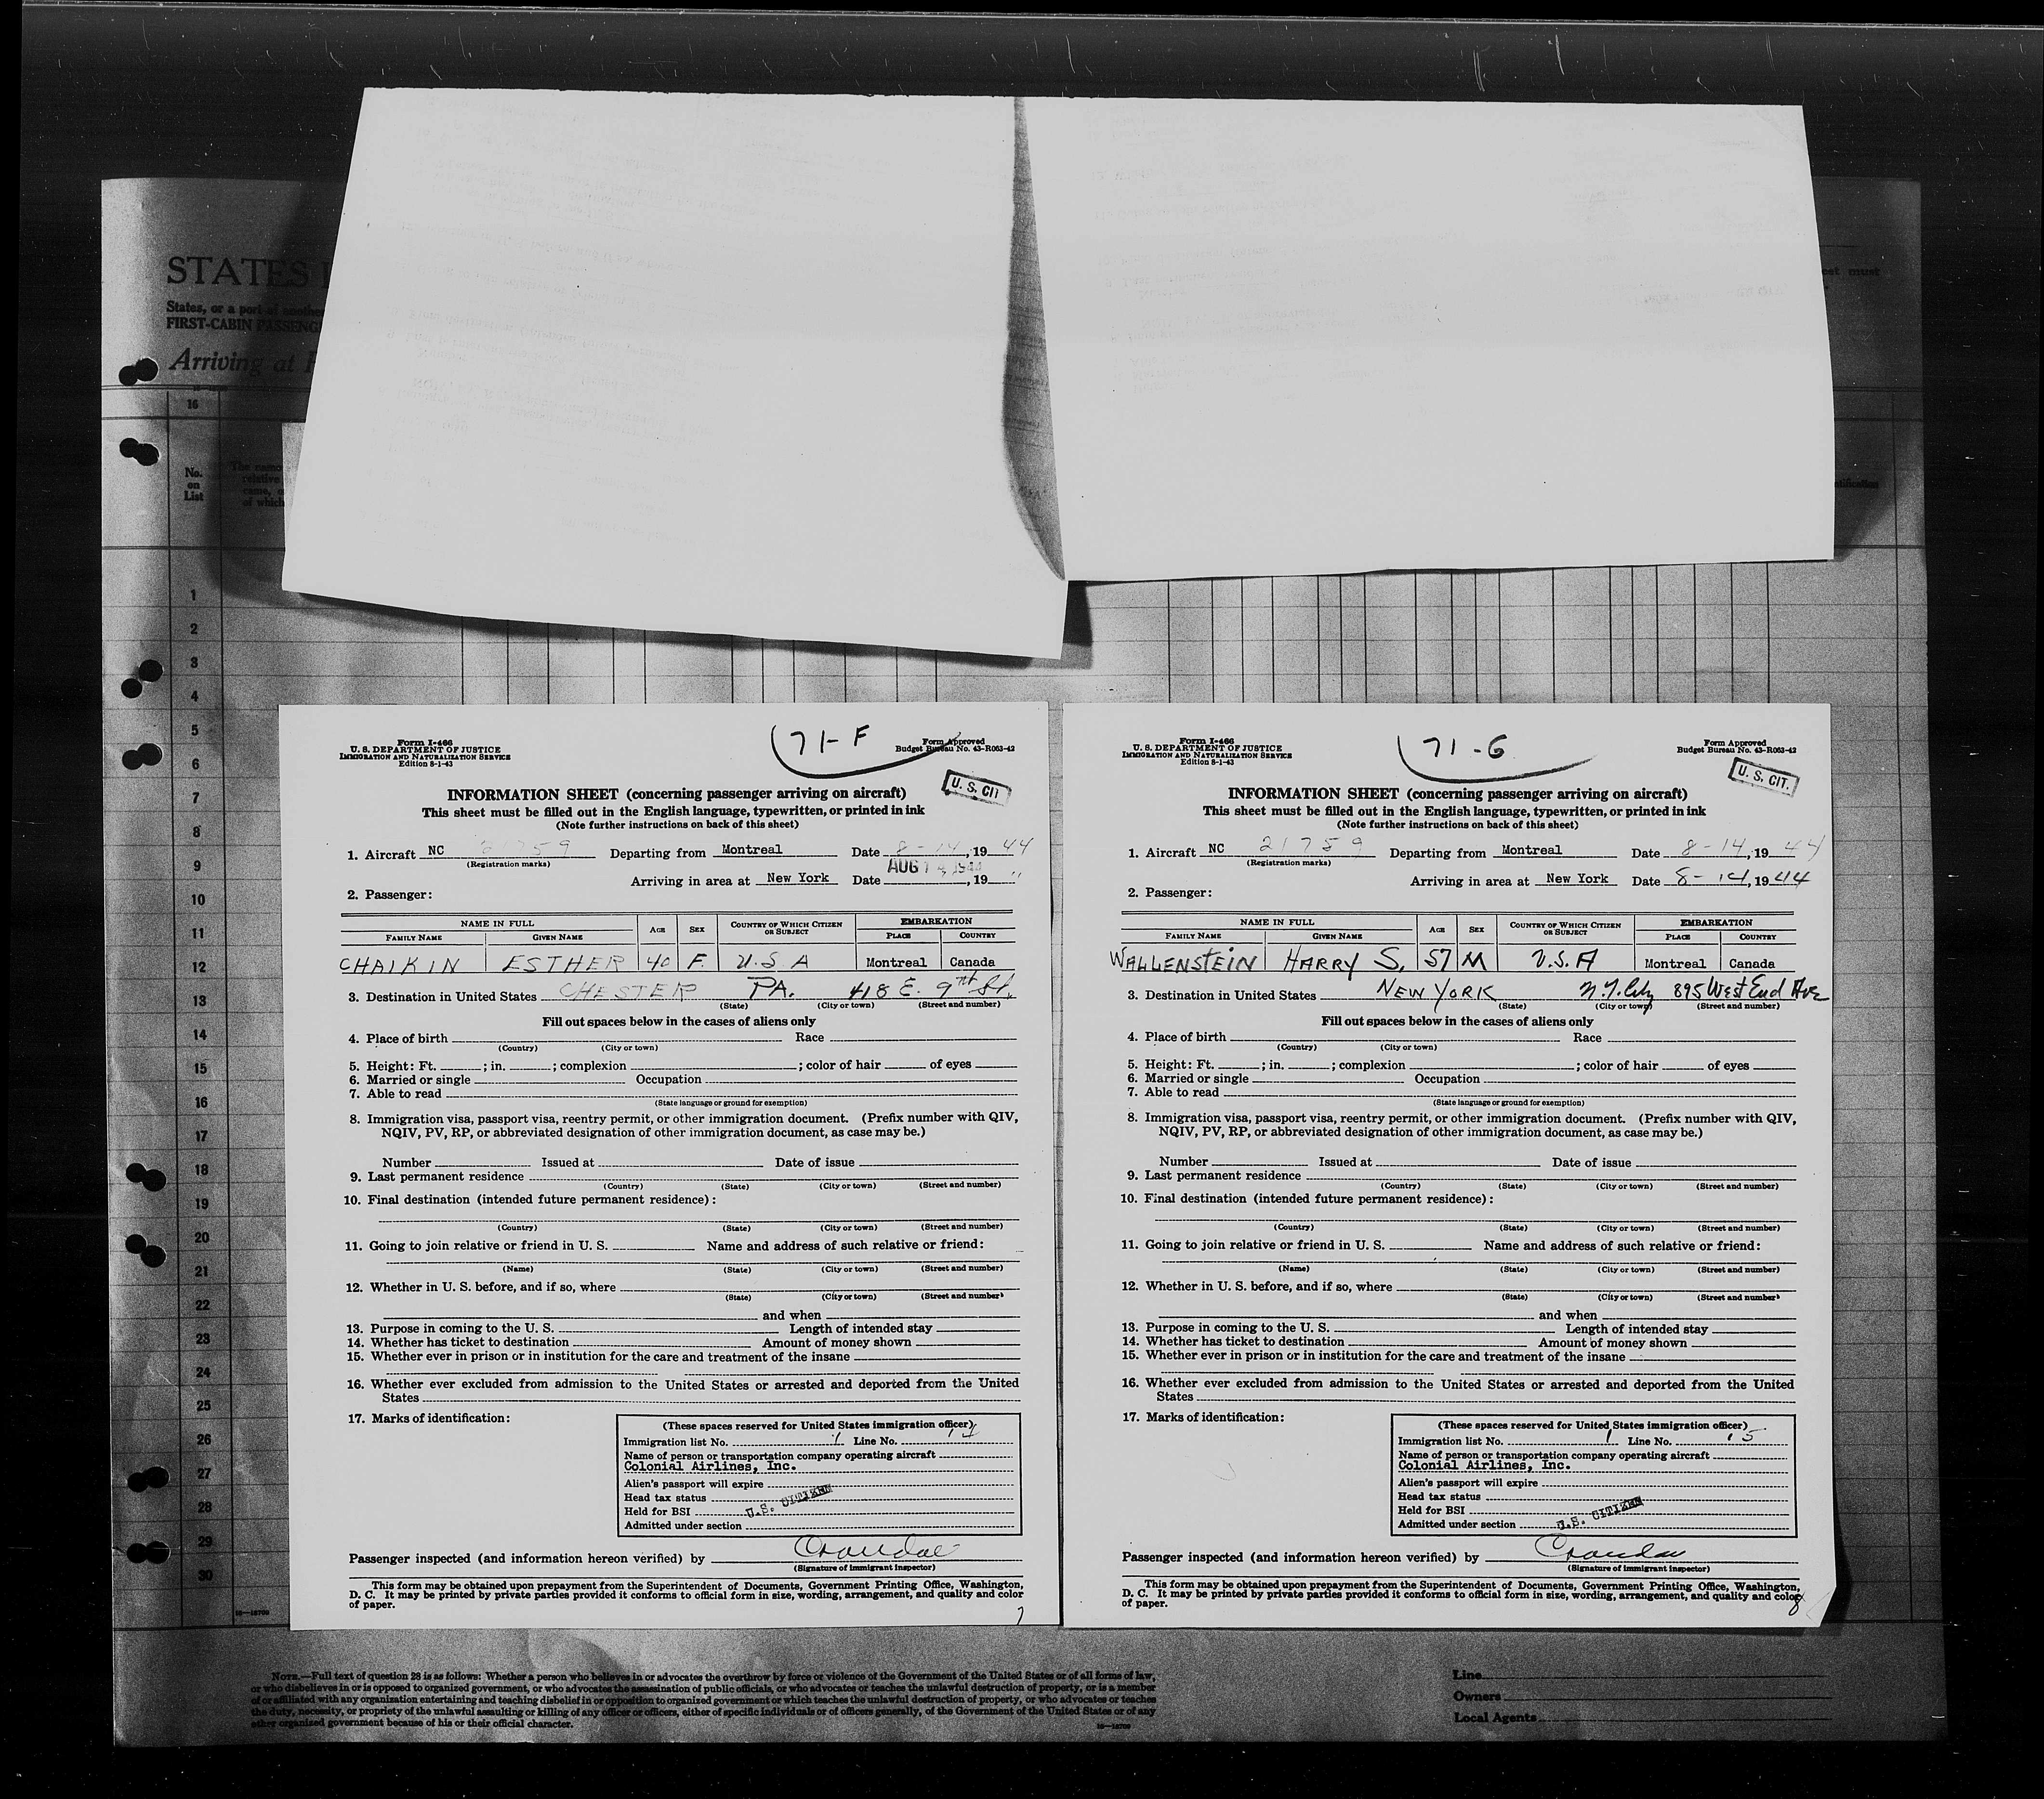 STATES
States, or a port of another
FIRST-CABIN PASSENG
Arriving at
16
No.
on
List
The name
relative
name,
of which
1
2
3
4
5
6
7
8
9
10
11
12
13
14
15
16
17
18
19
20
21
22
23
24
25
26
27
28
29
30
16—18700
et must
ntification
71-F
Form I-466
U. S. DEPARTMENT OF JUSTICE
IMMIGRATION AND NATURALIZATION SERVICE
Edition 8-1-43
Form Approved
Budget Bureau No. 43-R063-42
U. S. CIT
INFORMATION SHEET (concerning passenger arriving on aircraft)
This sheet must be filled out in the English language, typewritten, or printed in ink
(Note further instructions on back of this sheet)
1. Aircraft NC Departing from Montreal Date 8-14, 19 44
(Registration marks)
AUG 14 1944
Arriving in area at New York Date , 19 "
2. Passenger:
NAME IN FULL AGE SEX COUNTRY OF WHICH CITIZEN OR SUBJECT EMBARKATION
FAMILY NAME GIVEN NAME PLACE COUNTRY
CHAIKIN ESTHER 40 F. U.S A Montreal Canada
3. Destination in United States CHESTER PA. 418 E. 9th St.
(State) (City or town) (Street and number)
Fill out spaces below in the cases of aliens only
4. Place of birth Race
(Country) (City or town)
5. Height: Ft. ; in. ; complexion ; color of hair of eyes
6. Married or single Occupation
7. Able to read
(State language or ground for exemption)
8. Immigration visa, passport visa, reentry permit, or other immigration document. (Prefix number with QIV,
NQIV, PV, RP, or abbreviated designation of other immigration document, as case may be.)
Number Issued at Date of issue
9. Last permanent residence
(Country) (State) (City or town) (Street and number)
10. Final destination (intended future permanent residence):
(Country) (State) (City or town) (Street and number)
11. Going to join relative or friend in U. S. Name and address of such relative or friend:
(Name) (State) (City or town) (Street and number)
12. Whether in U. S. before, and if so, where
(State) (City or town) (Street and number)
and when
13. Purpose in coming to the U. S. Length of intended stay
14. Whether has ticket to destination Amount of money shown
15. Whether ever in prison or in institution for the care and treatment of the insane
16. Whether ever excluded from admission to the United States or arrested and deported from the United
States
17. Marks of identification:
(These spaces reserved for United States immigration officer)
Immigration list No. 1 Line No.
Name of person or transportation company operating aircraft
Colonial Airlines, Inc.
Alien's passport will expire
Head tax status
Held for BSI U.S. CITIZEN
Admitted under section
Passenger inspected (and information hereon verified) by
(Signature of immigrant inspector)
This form may be obtained upon prepayment from the Superintendent of Documents, Government Printing Office, Washington,
D. C. It may be printed by private parties provided it conforms to official form in size, wording, arrangement, and quality and color
of paper.
7
71-G
Form I-466
U. S. DEPARTMENT OF JUSTICE
IMMIGRATION AND NATURALIZATION SERVICE
Edition 8-1-43
Form Approved
Budget Bureau No. 43-R063-42
U. S. CIT.
INFORMATION SHEET (concerning passenger arriving on aircraft)
This sheet must be filled out in the English language, typewritten, or printed in ink
(Note further instructions on back of this sheet)
1. Aircraft NC 21759 Departing from Montreal Date 8-14, 19 44
(Registration marks)
Arriving in area at New York Date 8-14, 19 44
2. Passenger:
NAME IN FULL AGE SEX COUNTRY OF WHICH CITIZEN OR SUBJECT EMBARKATION
FAMILY NAME GIVEN NAME PLACE COUNTRY
WALLENSTEIN HARRY S. 57 M U.S.A Montreal Canada
3. Destination in United States NEW YORK N.Y. City 895 West End Ave
(State) (City or town) (Street and number)
Fill out spaces below in the cases of aliens only
4. Place of birth Race
(Country) (City or town)
5. Height: Ft. ; in. ; complexion ; color of hair of eyes
6. Married or single Occupation
7. Able to read
(State language or ground for exemption)
8. Immigration visa, passport visa, reentry permit, or other immigration document. (Prefix number with QIV,
NQIV, PV, RP, or abbreviated designation of other immigration document, as case may be.)
Number Issued at Date of issue
9. Last permanent residence
(Country) (State) (City or town) (Street and number)
10. Final destination (intended future permanent residence):
(Country) (State) (City or town) (Street and number)
11. Going to join relative or friend in U. S. Name and address of such relative or friend:
(Name) (State) (City or town) (Street and number)
12. Whether in U. S. before, and if so, where
(State) (City or town) (Street and number)
and when
13. Purpose in coming to the U. S. Length of intended stay
14. Whether has ticket to destination Amount of money shown
15. Whether ever in prison or in institution for the care and treatment of the insane
16. Whether ever excluded from admission to the United States or arrested and deported from the United
States
17. Marks of identification:
(These spaces reserved for United States immigration officer)
Immigration list No. 1 Line No. 15
Name of person or transportation company operating aircraft
Colonial Airlines, Inc.
Alien's passport will expire
Head tax status
Held for BSI
Admitted under section U.S. CITIZEN
Passenger inspected (and information hereon verified) by
(Signature of immigrant inspector)
This form may be obtained upon prepayment from the Superintendent of Documents, Government Printing Office, Washington,
D. C. It may be printed by private parties provided it conforms to official form in size, wording, arrangement, and quality and color
of paper.
8
NOTE.—Full text of question 28 is as follows: Whether a person who believes in or advocates the overthrow by force or violence of the Government of the United States or of all forms of law,
or who disbelieves in or is opposed to organized government, or who advocates the assassination of public officials, or who advocates or teaches the unlawful destruction of property, or is a member
of or affiliated with any organization entertaining and teaching disbelief in or opposition to organized government or which teaches the unlawful destruction of property, or who advocates or teaches
the duty, necessity, or propriety of the unlawful assaulting or killing of any officer or officers, either of specific individuals or of officers generally, of the Government of the United States or of any
other organized government because of his or their official character.
16—18700
Line
Owners
Local Agents